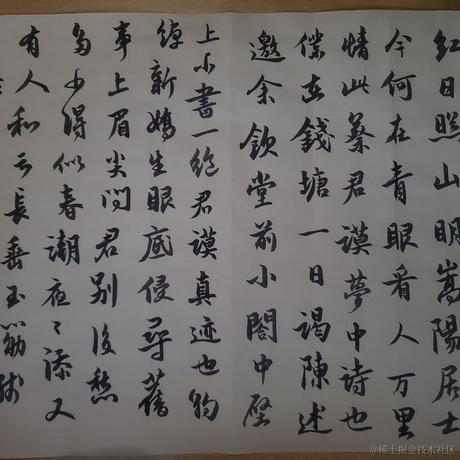 紅日照山明嵩陽居士
今何在青眼看人万里
情此蔡君謨夢中詩也
僕在錢塘一日謁陳述
邀余飲堂前小閣中壁
上小書一絶君謨真迹也約
綽新嬌生眼底侵尋舊
事上眉尖問君別後愁
多少得似春潮夜々添又
有人和云長垂玉筯殘
@稀土掘金技术社区